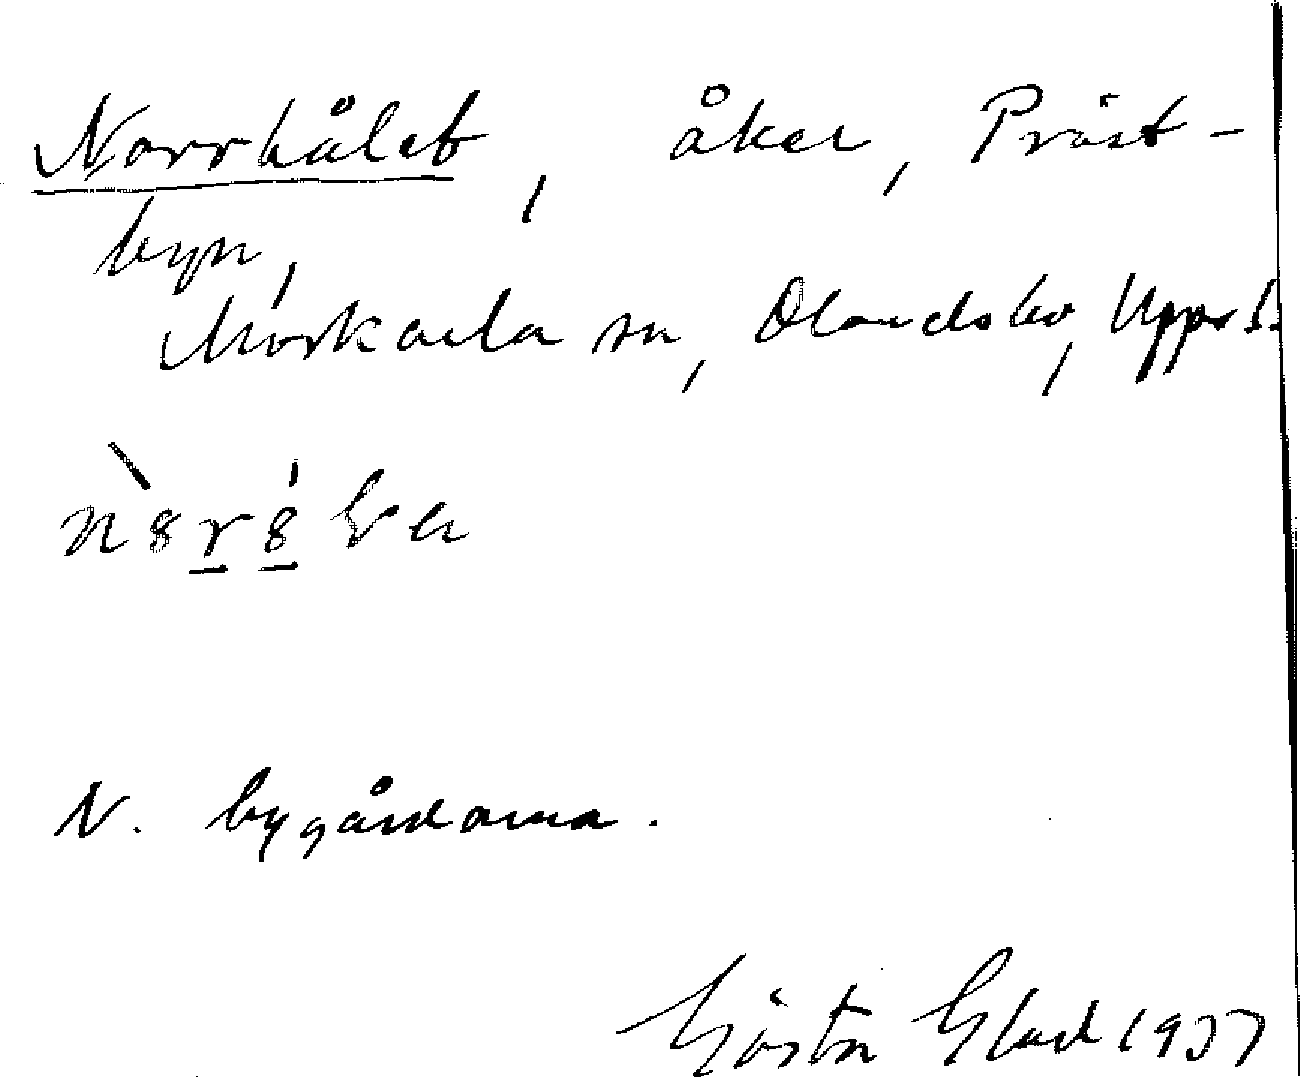 Norrhålet, åker, Präst-
byn,
Morkarla sn, Olands hd, Uppsl.
N. bygårdarna.
Gösta Glad 1937